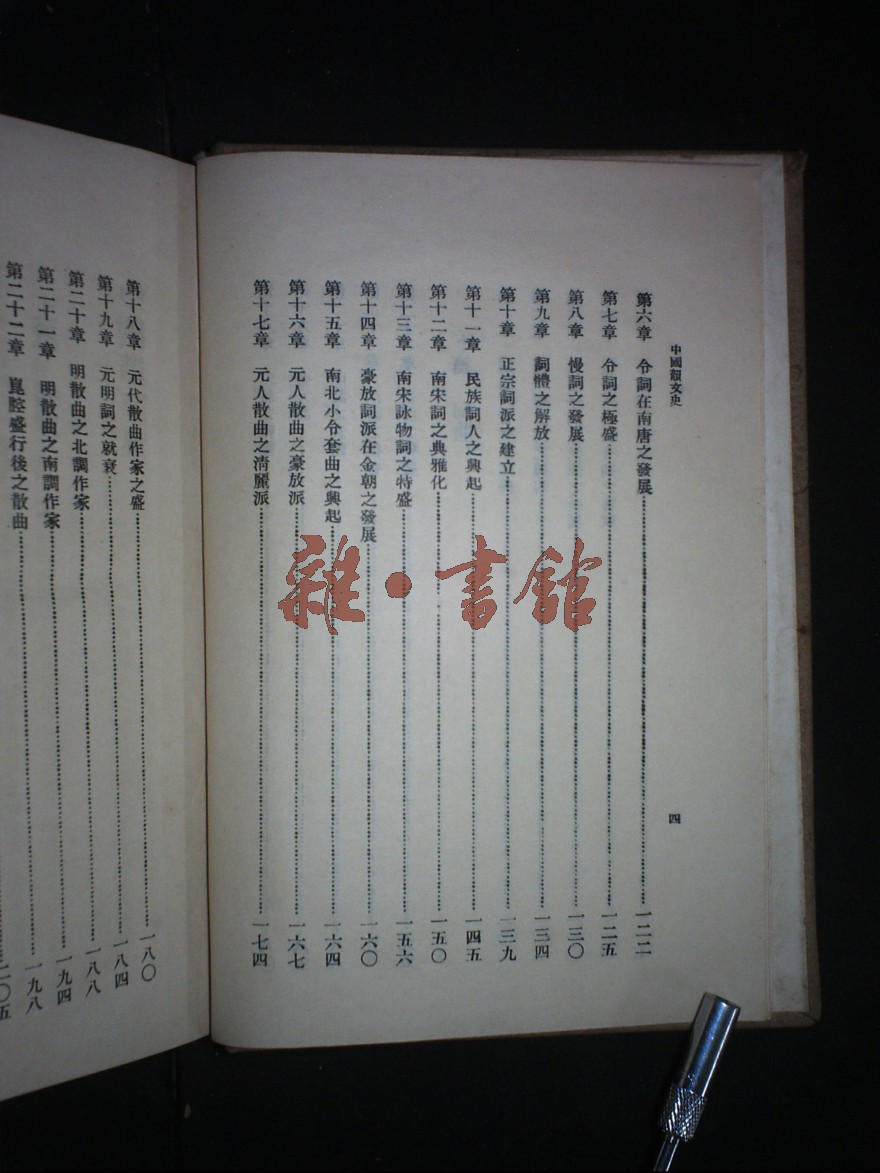 中國韻文史
四
第六章 令詞在南唐之發展……一二二
第七章 令詞之極盛……一二五
第八章 慢詞之發展……一三〇
第九章 詞體之解放……一三四
第十章 正宗詞派之建立……一三九
第十一章 民族詞人之興起……一四五
第十二章 南宋詞之典雅化……一五〇
第十三章 南宋詠物詞之特盛……一五六
第十四章 豪放詞派在金朝之發展……一六〇
第十五章 南北小令套曲之興起……一六四
第十六章 元人散曲之豪放派……一六七
第十七章 元人散曲之清麗派……一七四
第十八章 元代散曲作家之盛……一八〇
第十九章 元明詞之就衰……一八四
第二十章 明散曲之北調作家……一八八
第二十一章 明散曲之南調作家……一九四
第二十二章 崑腔盛行後之散曲……一九八
二〇五
雜·書館